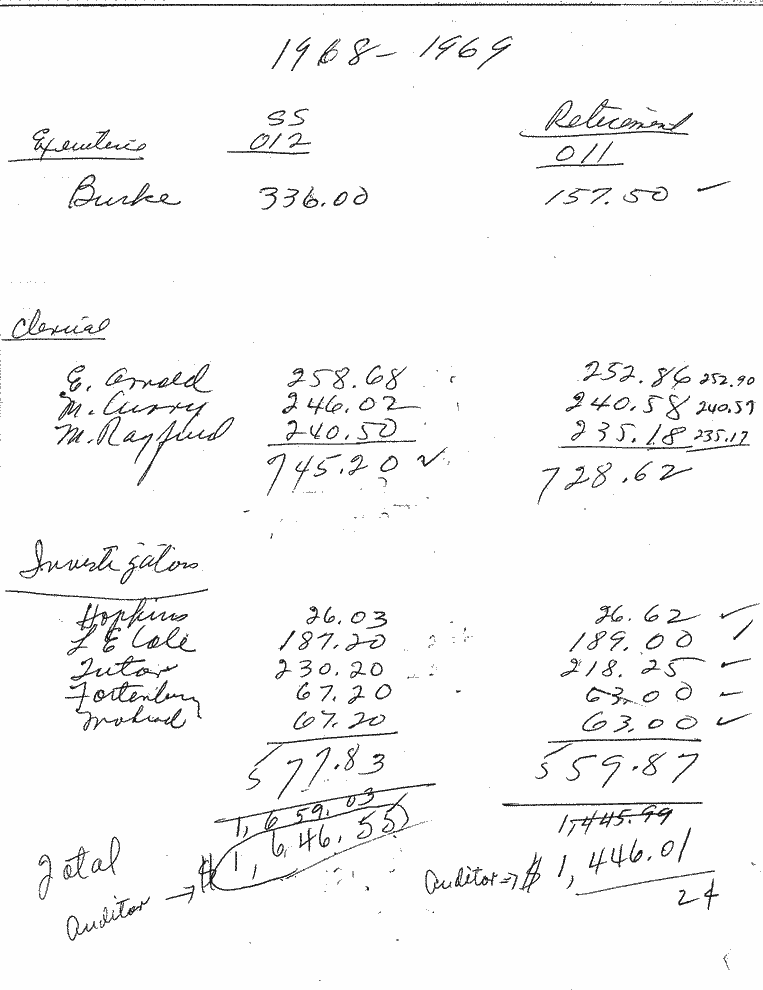 1968-1969
SS Retirement
Executive 012 011
Burke 336.00 157.50 ✓
Clerical
E. Arnold 258.68 252.86 252.90
M. Curry 246.02 240.58 240.59
M. Rayfield 240.50 235.18 235.17
745.20 ✓ 728.62
Investigators
Hopkins 26.03 26.62 ✓
L E Cole 187.20 189.00 ✓
Tutor 230.20 218.25 ✓
Fortenbury 67.20 63.00 ✓
67.20 63.00 ✓
577.83 559.87
1,659.03 1,445.99
Total $1,646.55 $1,446.01
Auditor → Auditor →
24